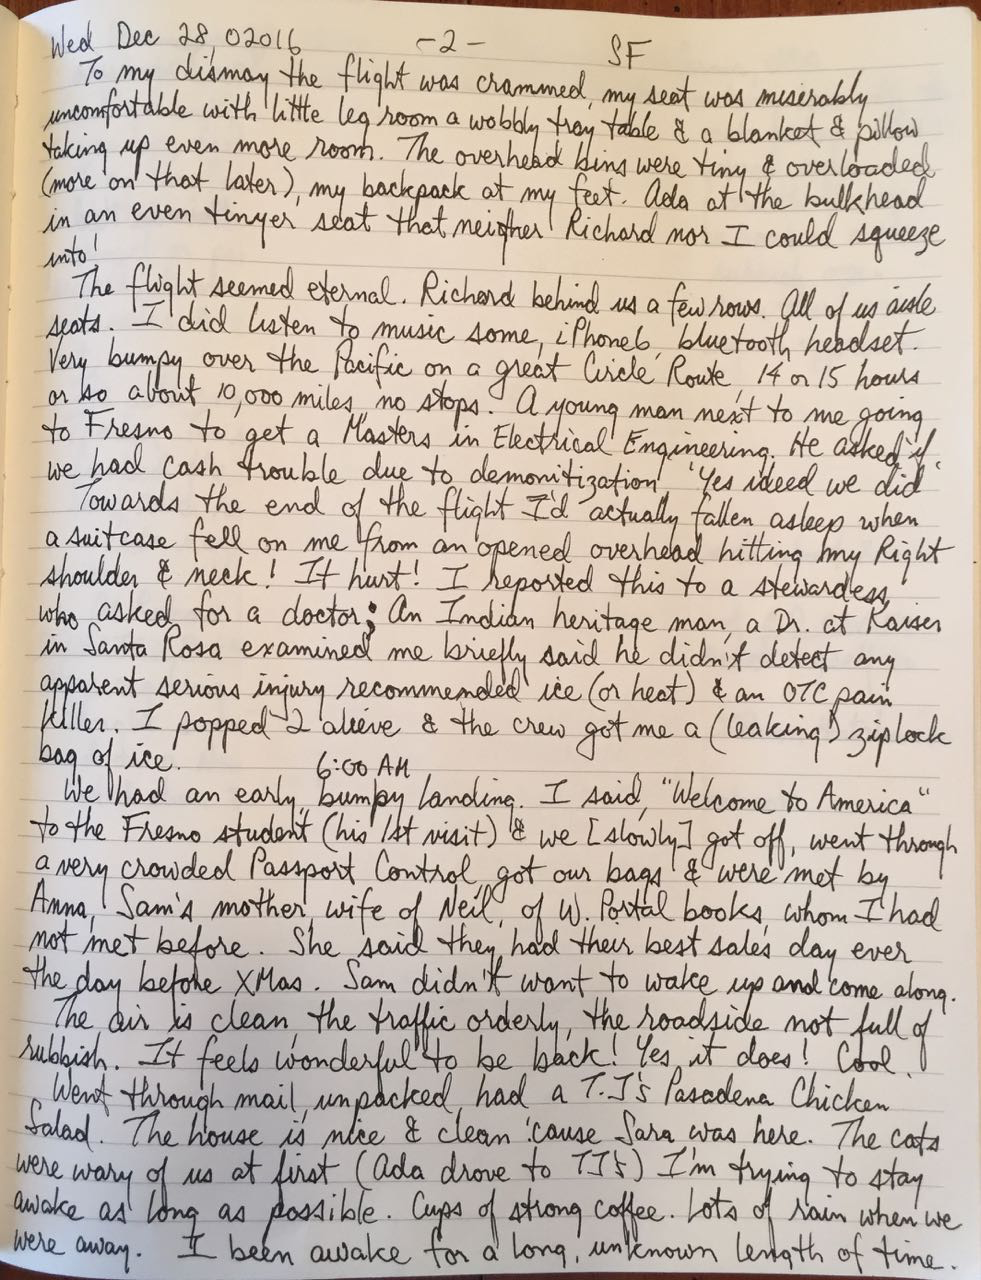 Wed Dec 28, 02016 -2- SF
To my dismay the flight was crammed, my seat was miserably
uncomfortable with little leg room a wobbly tray table & a blanket & pillow
taking up even more room. The overhead bins were tiny & overloaded
(more on that later), my backpack at my feet. Ada at the bulkhead
in an even tinyer seat that neigher Richard nor I could squeeze
into!
The flight seemed eternal. Richard behind us a few rows. All of us aisle
seats. I did listen to music some, iPhone6, bluetooth headset.
Very bumpy over the Pacific on a great Circle Route, 14 or 15 hours
or so about 10,000 miles, no stops. A young man next to me going
to Fresno to get a Masters in Electrical Engineering. He asked if
we had cash trouble due to demonitization "Yes ideed we did"
Towards the end of the flight I'd actually fallen asleep when
a suitcase fell on me from an opened overhead hitting my Right
shoulder & neck! It hurt! I reported this to a stewardess,
who asked for a doctor; An Indian heritage man, a Dr. at Kaiser
in Santa Rosa examined me briefly said he didn't detect any
apparent serious injury recommended ice (or heat) & an OTC pain
killer. I popped 2 alieve & the crew got me a (leaking) ziplock
bag of ice. 6:00 AM
We had an early, bumpy landing. I said, "Welcome to America"
to the Fresno student (his 1st visit) & we [slowly] got off, went through
a very crowded Passport Control, got our bags & were met by
Anna, Sam's mother, wife of Neil, of W. Portal books, whom I had
not met before. She said they had their best sales day ever
the day before XMas. Sam didn't want to wake up and come along.
The air is clean, the traffic orderly, the roadside not full of
rubbish. It feels wonderful to be back! Yes it does! Cool.
Went through mail, unpacked, had a T.J's Pasadena Chicken
Salad. The house is nice & clean 'cause Sara was here. The cats
were wary of us at first (Ada drove to TJ's) I'm trying to stay
awake as long as possible. Cups of strong coffee. Lots of rain when we
were away. I been awake for a long, unknown length of time.